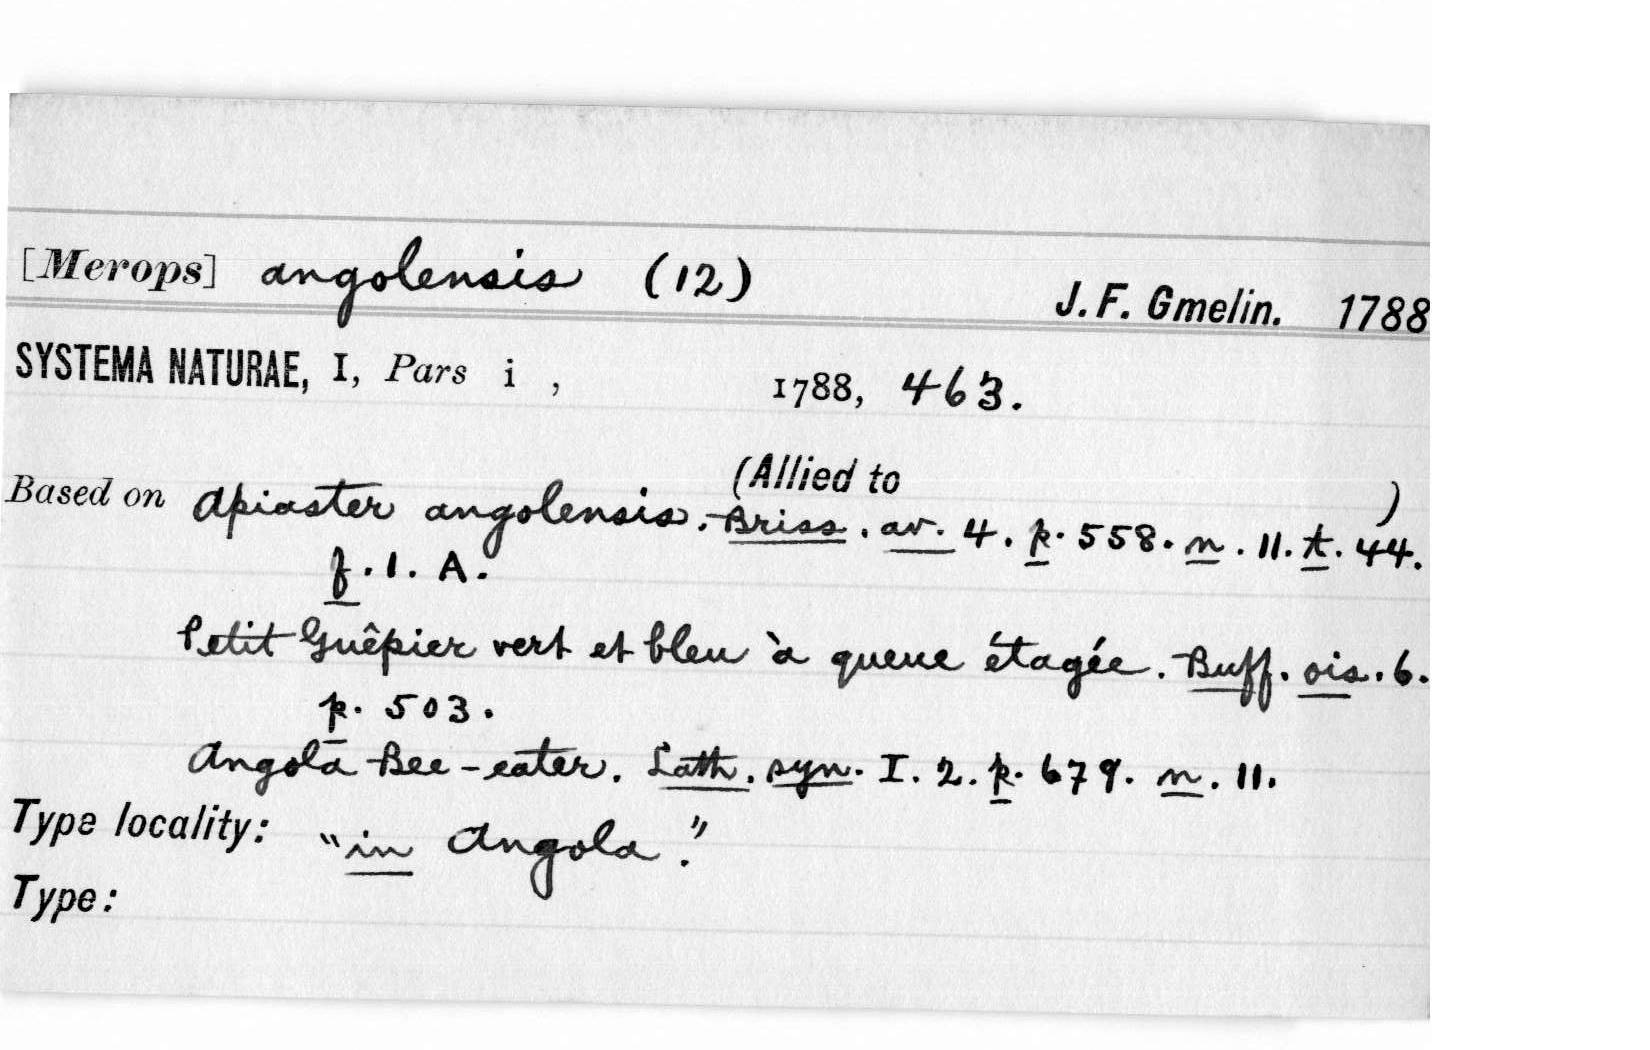 [Merops] angolensis (12) J. F. Gmelin. 1788
SYSTEMA NATURAE, I, Pars i , 1788, 463.
(Allied to )
Based on Apiaster angolensis. Briss. av. 4. p. 558. n. 11. t. 44.
f. 1. A.
Petit Guêpier vert et bleu à queue étagée. Buff. ois. 6.
p. 503.
Angola Bee-eater. Lath. syn. I. 2. p. 679. n. 11.
Type locality: "in Angola."
Type: